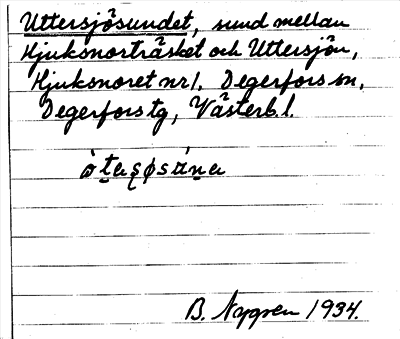 Uttersjösundet, sund mellan
Hjuksnorträsket och Uttersjön,
Hjuksnoret nr 1. Degerfors sn,
Degerfors tg, Västerb. l.
B. Nygren 1934.